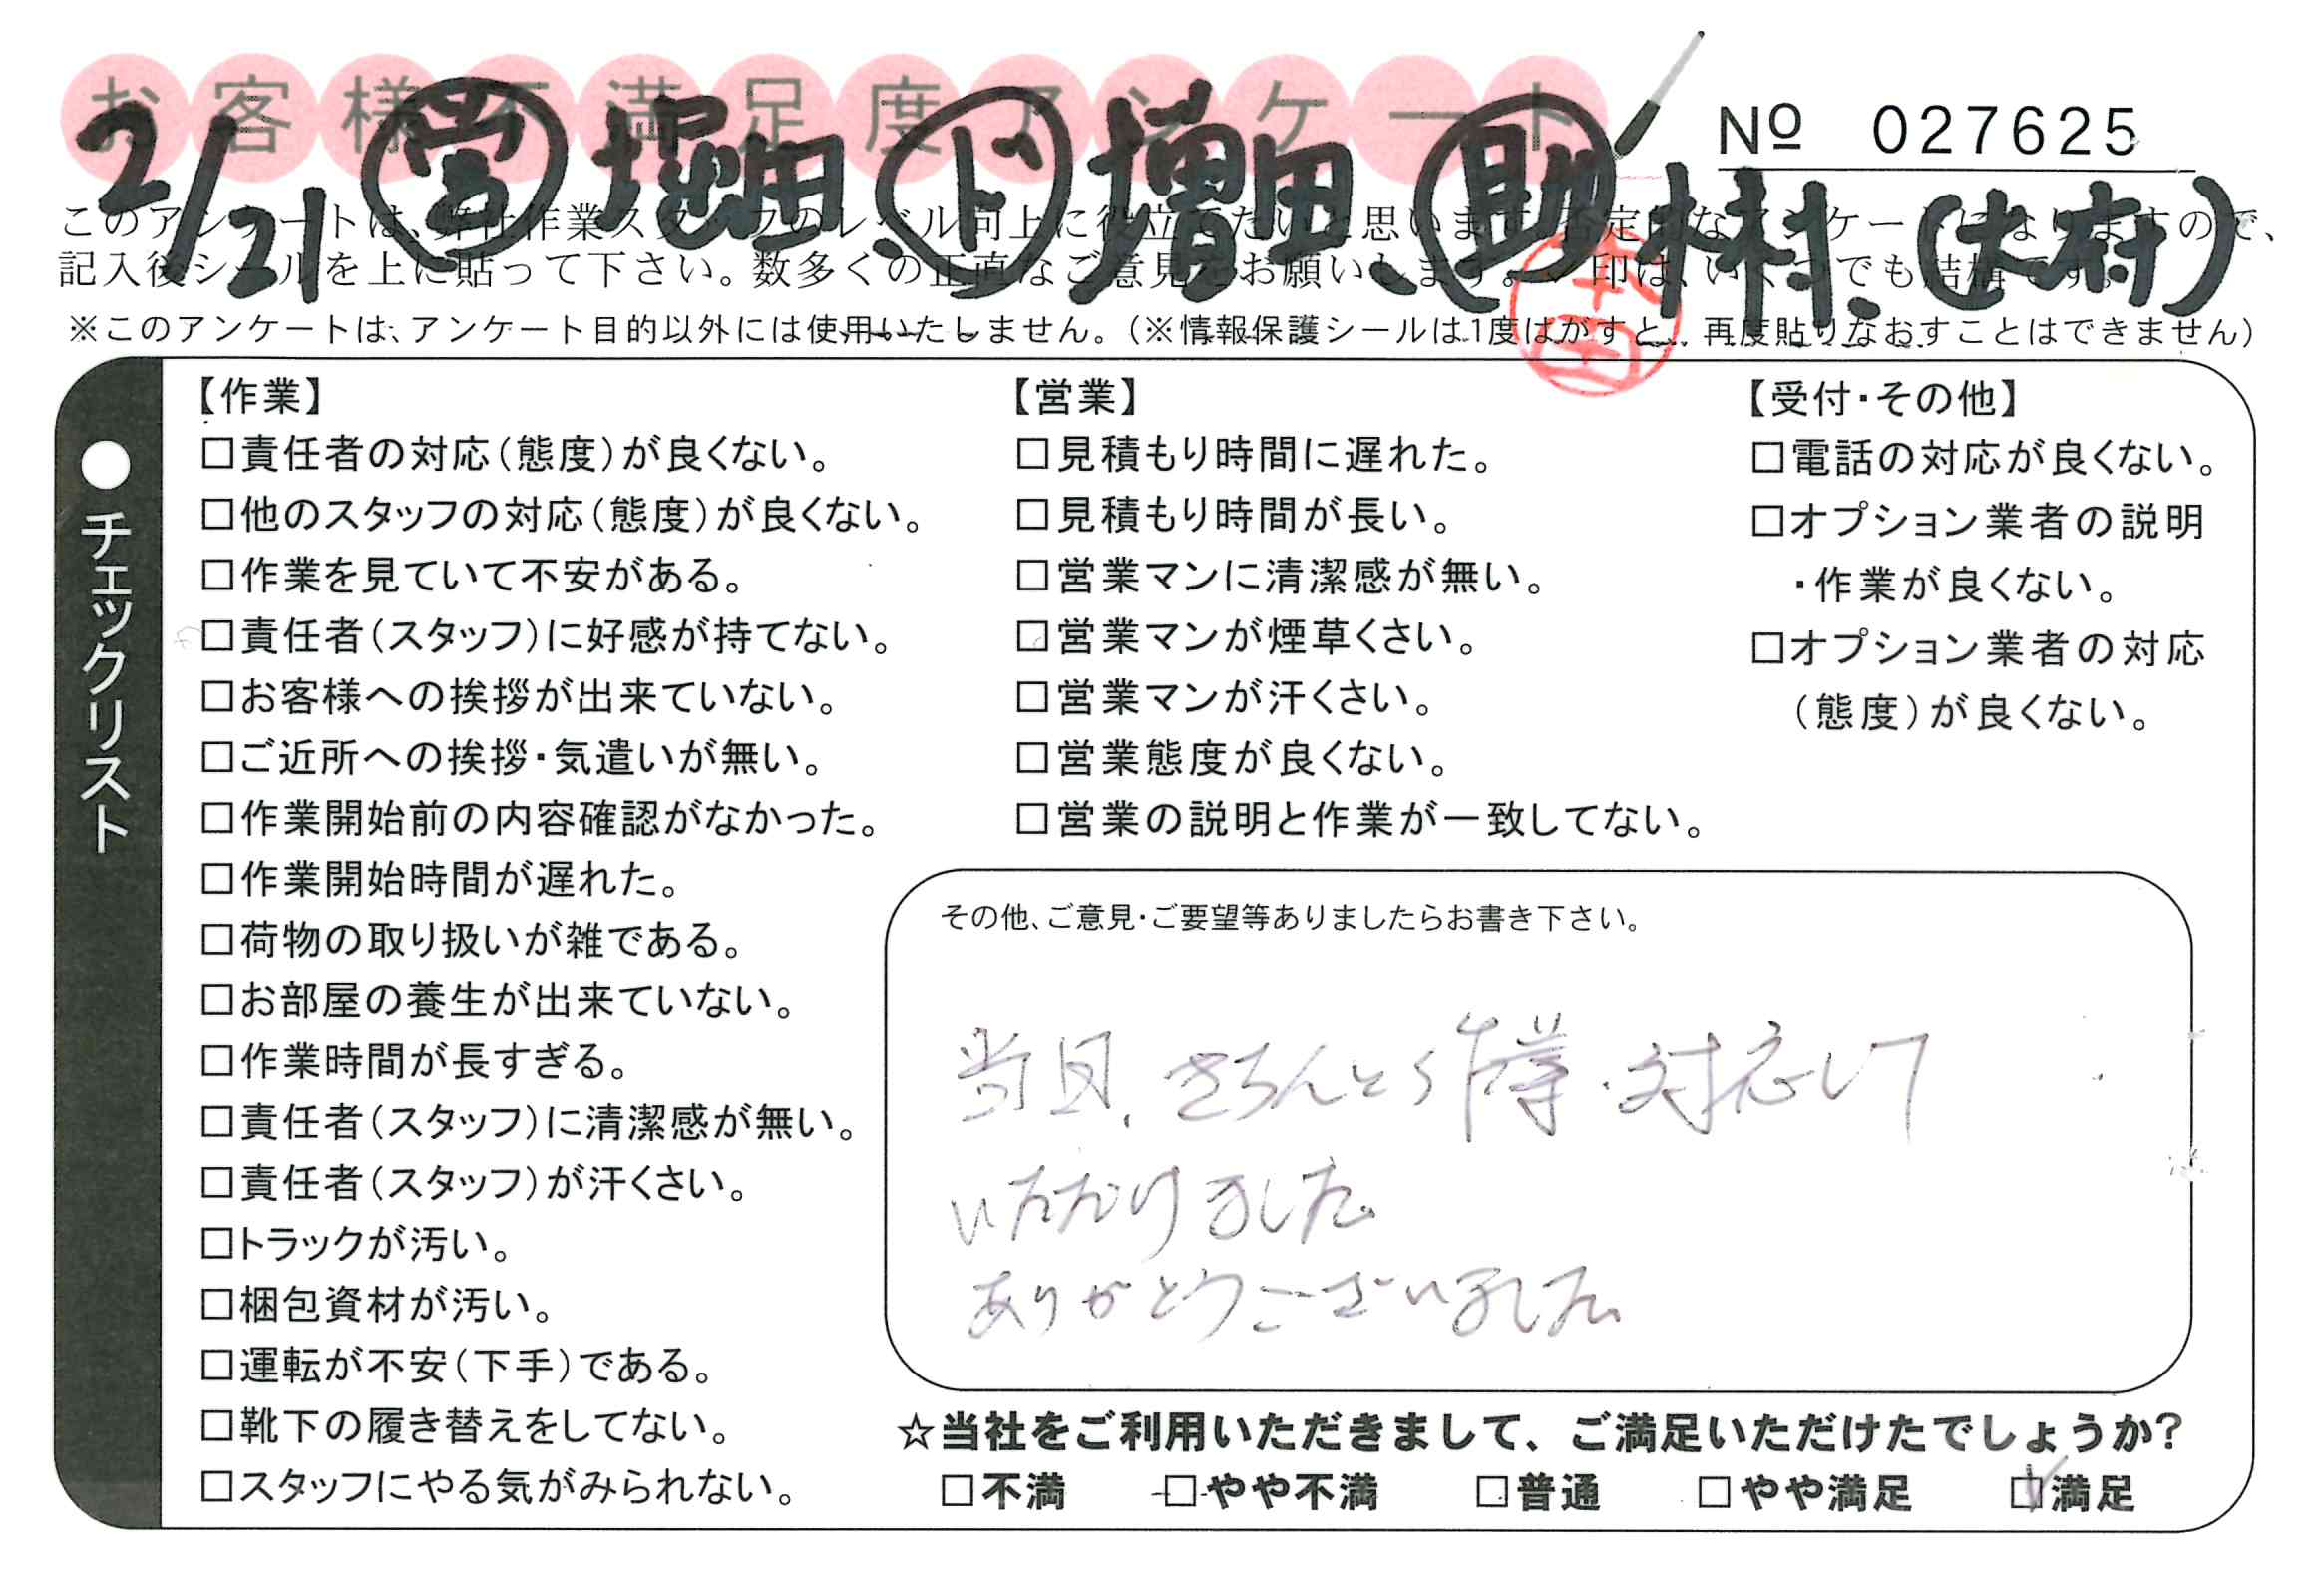 お客様不満足度アンケート
№ 027625
2/21 営 堀田、ド 増田、助 林 (大府)
このアンケートは、弊社作業スタッフのレベル向上に役立てたいと思います。否定的なアンケートになりますので、
記入後シールを上に貼って下さい。数多くの正直なご意見をお願いします。✓印は、いくつでも結構です。
※このアンケートは、アンケート目的以外には使用いたしません。(※情報保護シールは1度はがすと、再度貼りなおすことはできません)
●チェックリスト
【作業】
□責任者の対応(態度)が良くない。
□他のスタッフの対応(態度)が良くない。
□作業を見ていて不安がある。
□責任者(スタッフ)に好感が持てない。
□お客様への挨拶が出来ていない。
□ご近所への挨拶・気遣いが無い。
□作業開始前の内容確認がなかった。
□作業開始時間が遅れた。
□荷物の取り扱いが雑である。
□お部屋の養生が出来ていない。
□作業時間が長すぎる。
□責任者(スタッフ)に清潔感が無い。
□責任者(スタッフ)が汗くさい。
□トラックが汚い。
□梱包資材が汚い。
□運転が不安(下手)である。
□靴下の履き替えをしてない。
□スタッフにやる気がみられない。
【営業】
□見積もり時間に遅れた。
□見積もり時間が長い。
□営業マンに清潔感が無い。
□営業マンが煙草くさい。
□営業マンが汗くさい。
□営業態度が良くない。
□営業の説明と作業が一致してない。
【受付・その他】
□電話の対応が良くない。
□オプション業者の説明
・作業が良くない。
□オプション業者の対応
(態度)が良くない。
その他、ご意見・ご要望等ありましたらお書き下さい。
当日、きちんと作業・対応して
いただけました。
ありがとうございました。
☆当社をご利用いただきまして、ご満足いただけたでしょうか?
□不満 □やや不満 □普通 □やや満足 ☑満足